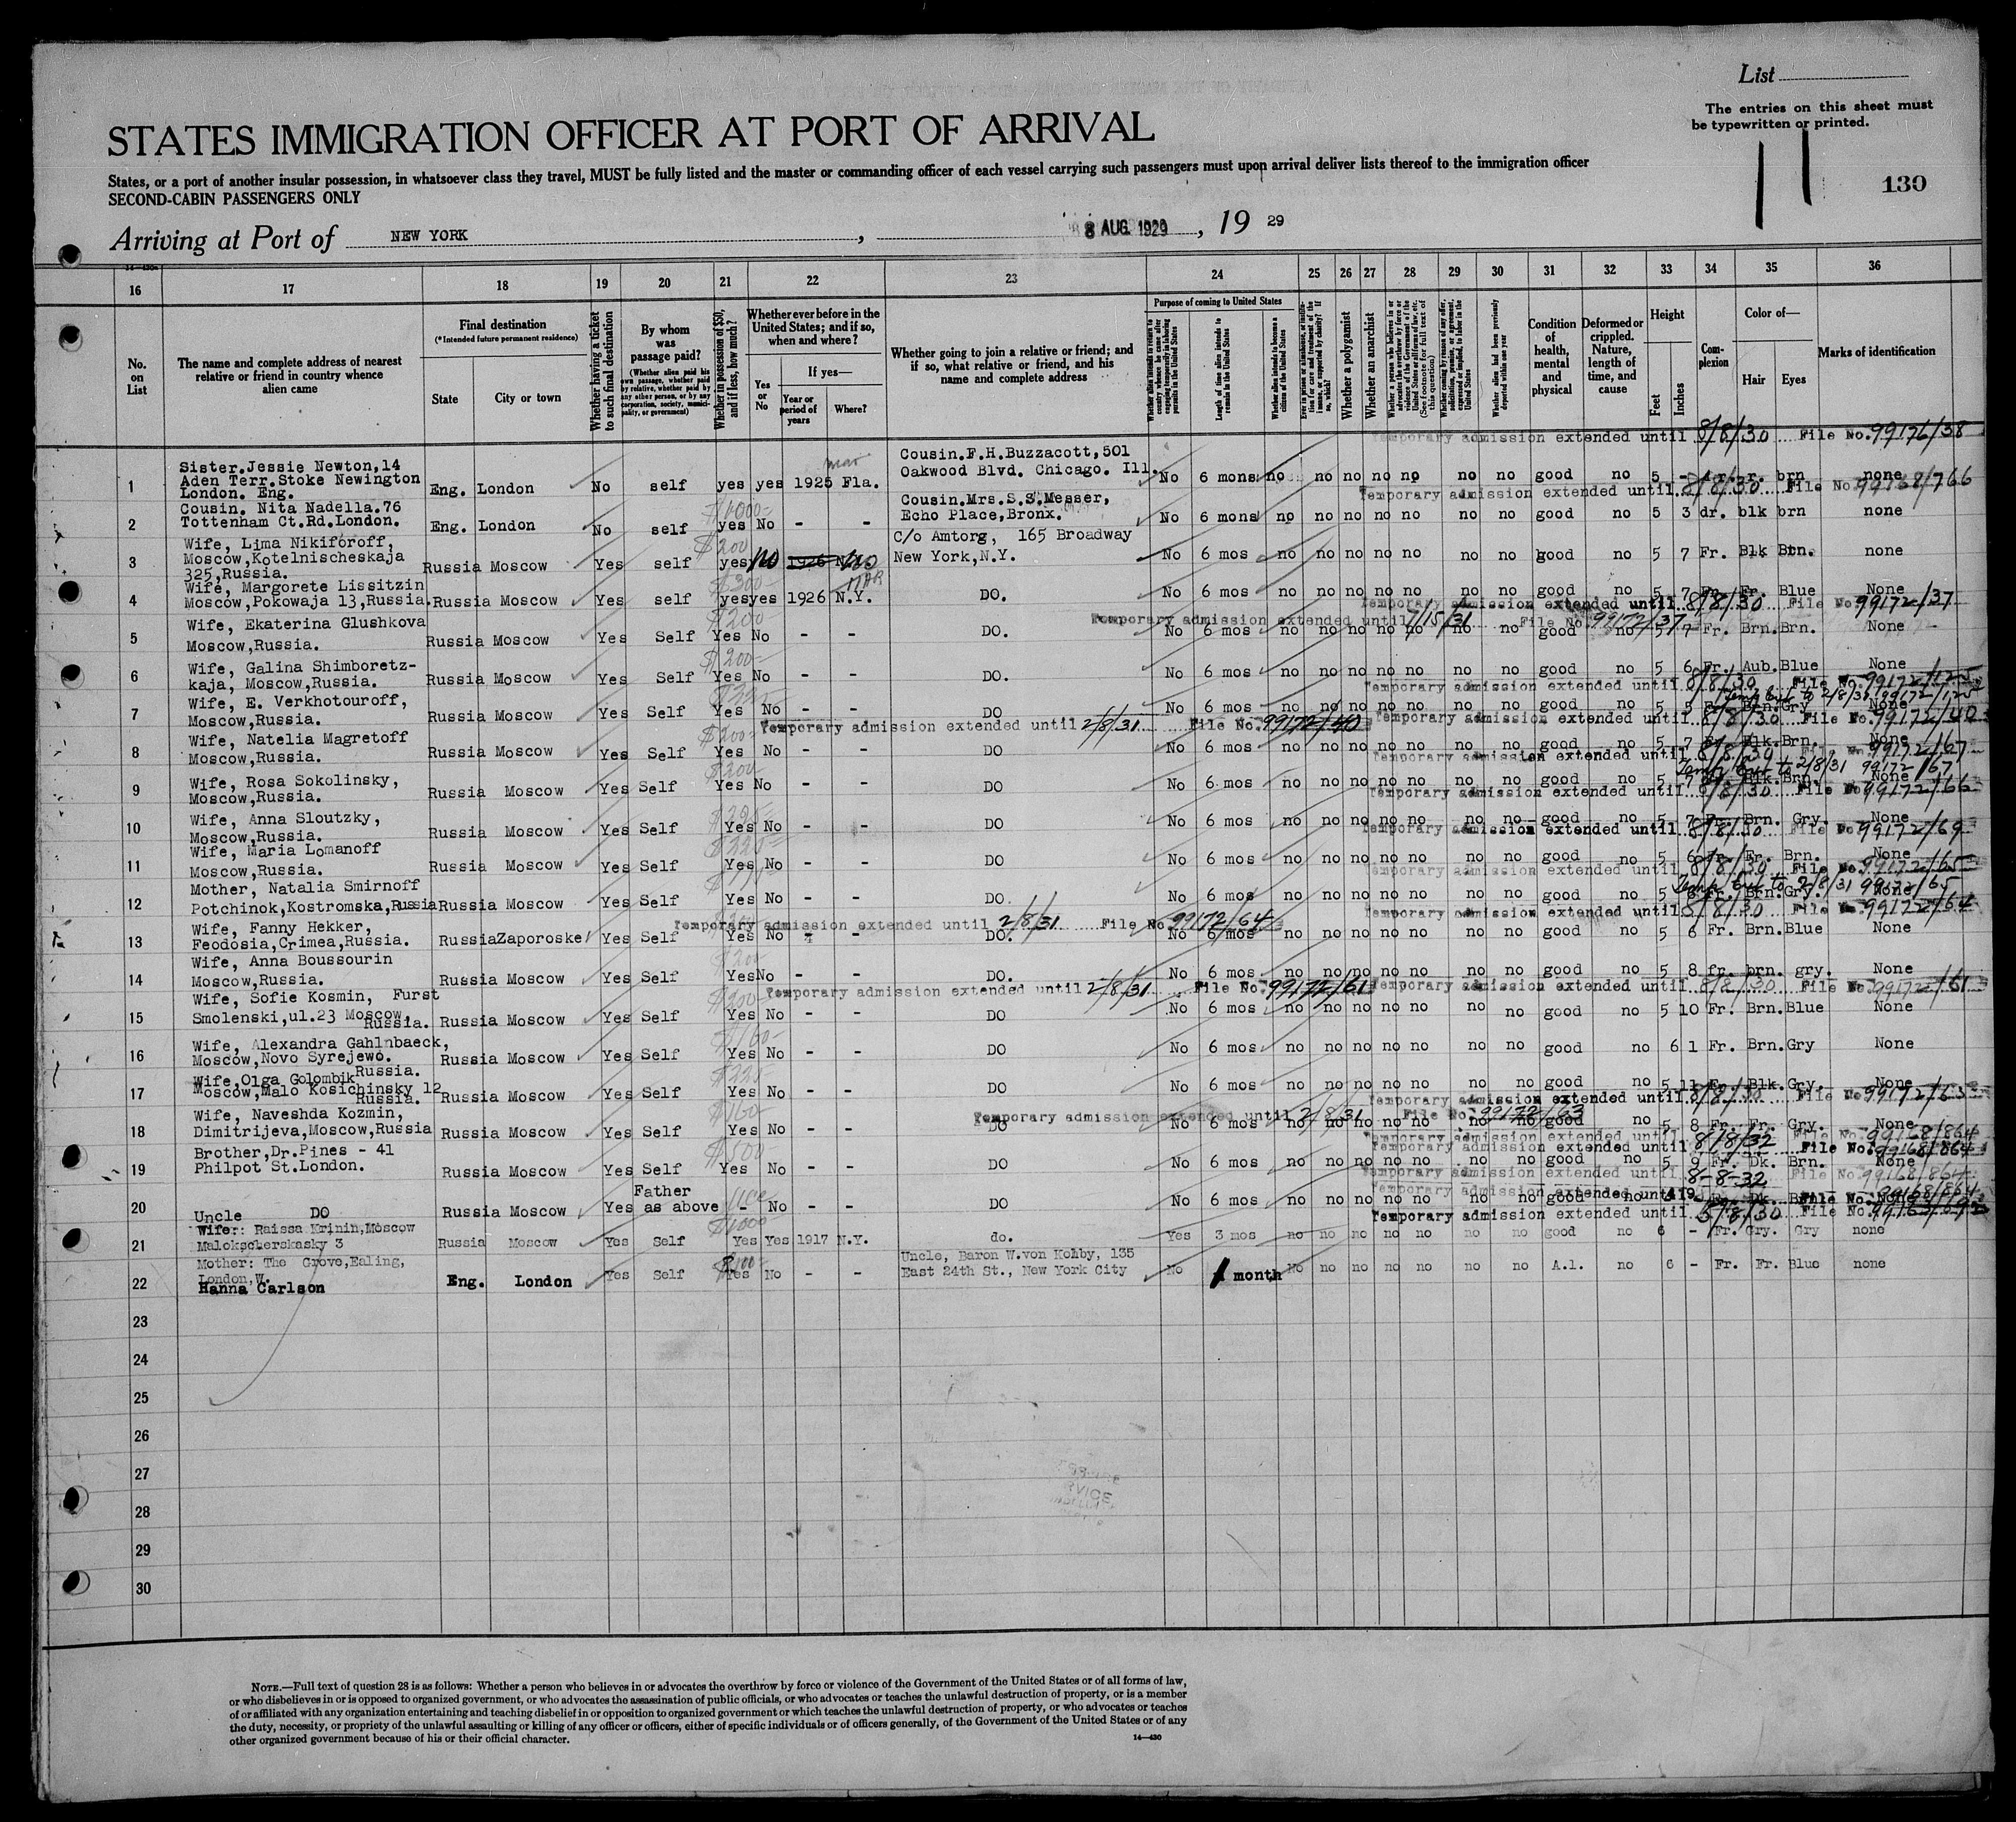 List
The entries on this sheet must
be typewritten or printed.
STATES IMMIGRATION OFFICER AT PORT OF ARRIVAL
130
States, or a port of another insular possession, in whatsoever class they travel, MUST be fully listed and the master or commanding officer of each vessel carrying such passengers must upon arrival deliver lists thereof to the immigration officer
SECOND-CABIN PASSENGERS ONLY
Arriving at Port of NEW YORK, 8 AUG. 1929, 19 29
16 17 18 19 20 21 22 23 24 25 26 27 28 29 30 31 32 33 34 35 36
No. on List
The name and complete address of nearest relative or friend in country whence alien came
Final destination
(*Intended future permanent residence)
State
City or town
Whether having a ticket to such final destination
By whom was passage paid?
(Whether alien paid his own passage, whether paid by relative, whether paid by any other person, or by any corporation, society, municipality, or government)
Whether in possession of $50, and if less, how much?
Whether ever before in the United States; and if so, when and where?
Yes or No
If yes—
Year or period of years
Where?
Whether going to join a relative or friend; and if so, what relative or friend, and his name and complete address
Purpose of coming to United States
Length of time alien intends to remain in the United States
Whether alien intends to become a citizen of the United States
Whether a polygamist
Whether an anarchist
Whether alien had been previously deported within one year
Condition of health, mental and physical
Deformed or crippled. Nature, length of time, and cause
Height
Feet
Inches
Complexion
Color of—
Hair
Eyes
Marks of identification
Temporary admission extended until 8/8/30 File No. 99176/38
1 Sister.Jessie Newton,14 Aden Terr.Stoke Newington London. Eng. Eng. London No self yes yes 1925 Fla. Cousin.F.H.Buzzacott,501 Oakwood Blvd. Chicago. Ill. No 6 mons no no no no no no no good no 5 - dr. gr. brn none
Temporary admission extended until 8/8/30 File No. 99168/766
2 Cousin. Nita Nadella.76 Tottenham Ct.Rd.London. Eng. London No self $1000- yes No - - Cousin.Mrs.S.S.Messer, Echo Place,Bronx. No 6 mons no no no no no no no good no 5 3 dr. blk brn none
3 Wife, Lima Nikiforoff, Moscow,Kotelnischeskaja 325,Russia. Russia Moscow Yes self $200 yes No 1926 c/o Amtorg, 165 Broadway New York,N.Y. No 6 mos no no no no no no no good no 5 7 Fr. Blk Brn. none
4 Wife, Margorete Lissitzin Moscow,Pokowaja 13,Russia. Russia Moscow Yes self $300- yes yes 1926 N.Y. MAR DO. No 6 mos no no no no no no no good no 5 7 Fr. Fr. Blue None
Temporary admission extended until 8/8/30 File No 99172/37
Temporary admission extended until 7/15/31 File No. 99172/37
5 Wife, Ekaterina Glushkova Moscow,Russia. Russia Moscow Yes Self $200- Yes No - - DO. No 6 mos no no no no no no no good no 5 7 Fr. Brn. Brn. None
6 Wife, Galina Shimboretz- kaja, Moscow,Russia. Russia Moscow Yes Self $200- Yes No - - DO. No 6 mos no no no no no no no good no 5 6 Fr. Aub. Blue None
Temporary admission extended until 8/8/30 File No. 99172/125
7 Wife, E. Verkhotouroff, Moscow,Russia. Russia Moscow Yes Self Yes No - - DO No 6 mos no no no no no no no good no 5 5 Fr. Brn. Gry None
Temporary admission extended until 2/8/31 File No. 99172/40 Temporary admission extended until 8/8/30 File No. 99172/40
8 Wife, Natelia Magretoff Moscow,Russia. Russia Moscow Yes Self $200- Yes No - - DO No 6 mos no no no no no no no good no 5 7 Fr. Blk. Brn. None
Temporary admission extended until 8/8/30 99172/67
9 Wife, Rosa Sokolinsky, Moscow,Russia. Russia Moscow Yes Self $200 Yes No - - DO No 6 mos no no no no no no no good no 5 7 Blk. Brn. None
Temporary admission extended until 8/8/30 File No 99172/66
10 Wife, Anna Sloutzky, Moscow,Russia. Russia Moscow Yes Self Yes No - - DO No 6 mos no no no no no no no good no 5 7 Fr. Brn. Gry. None
Temporary admission extended until 8/8/30 File No 99172/69
11 Wife, Maria Lomanoff Moscow,Russia. Russia Moscow Yes Self $225 Yes No - - DO No 6 mos no no no no no no no good no 5 6 Fr. Fr. Brn. None
Temporary admission extended until 8/8/30 File No. 99172/65
12 Mother, Natalia Smirnoff Potchinok,Kostromska,Russia Russia Moscow Yes Self Yes No - - DO. No 6 mos no no no no no no no good no 5 6 Fr. Brn. Gry. None
Temporary admission extended until 8/8/30 File No. 99172/64
Temporary admission extended until 2/8/31 File No 99172/64
13 Wife, Fanny Hekker, Feodosia,Crimea,Russia. Russia Zaporoske Yes Self Yes No - - DO. No 6 mos no no no no no no no good no 5 6 Fr. Brn. Blue None
14 Wife, Anna Boussourin Moscow,Russia. Russia Moscow Yes Self Yes No - - DO. No 6 mos no no no no no no no good no 5 8 fr. brn. gry. None
Temporary admission extended until 2/8/31 File No. 99172/61 Temporary admission extended until 8/8/30 File No. 99172/61
15 Wife, Sofie Kosmin, Furst Smolenski,ul.23 Moscow, Russia. Russia Moscow Yes Self $200- Yes No - - DO No 6 mos no no no no no no no good no 5 10 Fr. Brn. Blue None
16 Wife, Alexandra Gahlnbaeck, Moscow,Novo Syrejewo. Russia. Russia Moscow Yes Self $160- Yes No - - DO No 6 mos no no no no no no no good no 6 1 Fr. Brn. Gry None
17 Wife,Olga Golombik Moscow,Malo Kosichinsky 12 Russia. Russia Moscow Yes Self $225- Yes No - - DO No 6 mos no no no no no no no good no 5 11 Fr. Blk. Gry. None
Temporary admission extended until 8/8/30 File No 99172/63
Temporary admission extended until 2/8/31 File No. 99172/63
18 Wife, Naveshda Kozmin, Dimitrijeva,Moscow,Russia Russia Moscow Yes Self $160- Yes No - - DO No 6 mos no no no no no no no good no 5 8 Fr. Fr. Gry. None
Temporary admission extended until 8/8/32 File No. 99168/864
19 Brother,Dr.Pines - 41 Philpot St.London. Russia Moscow Yes Self $500- Yes No - - DO No 6 mos no no no no no no no good no 5 9 Fr. Dk. Brn. None
Temporary admission extended until 8-8-32 File No. 99168/864
20 Uncle DO Russia Moscow Yes Father as above - No - - DO No 6 mos no no no no no no no good no Fr. Dk. Brn. None
Temporary admission extended until 5/8/30 File No.
21 Wife: Raissa Krinin,Moscow Malokscherskasky 3 Russia Moscow Yes Self $1000 Yes Yes 1917 N.Y. do. Yes 3 mos no no no no no no no good no 6 - Fr. Gry. Gry none
22 Mother: The Grove,Ealing, London,W. Hanna Carlson Eng. London Yes Self Yes No - - Uncle, Baron W.von Kohby, 135 East 24th St., New York City No 1 month No no no no no no no A.1. no 6 - Fr. Fr. Blue none
23
24
25
26
27
28
29
30
NOTE.—Full text of question 28 is as follows: Whether a person who believes in or advocates the overthrow by force or violence of the Government of the United States or of all forms of law,
or who disbelieves in or is opposed to organized government, or who advocates the assassination of public officials, or who advocates or teaches the unlawful destruction of property, or is a member
of or affiliated with any organization entertaining and teaching disbelief in or opposition to organized government or which teaches the unlawful destruction of property, or who advocates or teaches
the duty, necessity, or propriety of the unlawful assaulting or killing of any officer or officers, either of specific individuals or of officers generally, of the Government of the United States or of any
other organized government because of his or their official character.
14—430